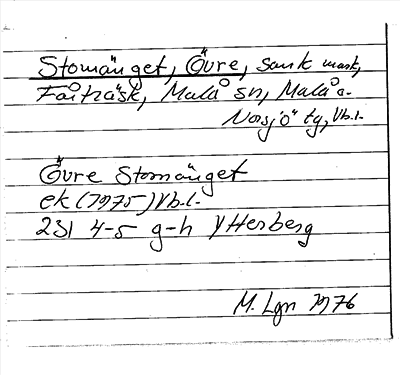 Stomänget, Övre, sank mark,
Fårträsk, Malå sn, Malå o.
Norsjö tg, Vb.l.
Övre Stomänget
ek (1975) Vb.l.
231 4-5 g-h Ytterberg
M. Lgn 1976